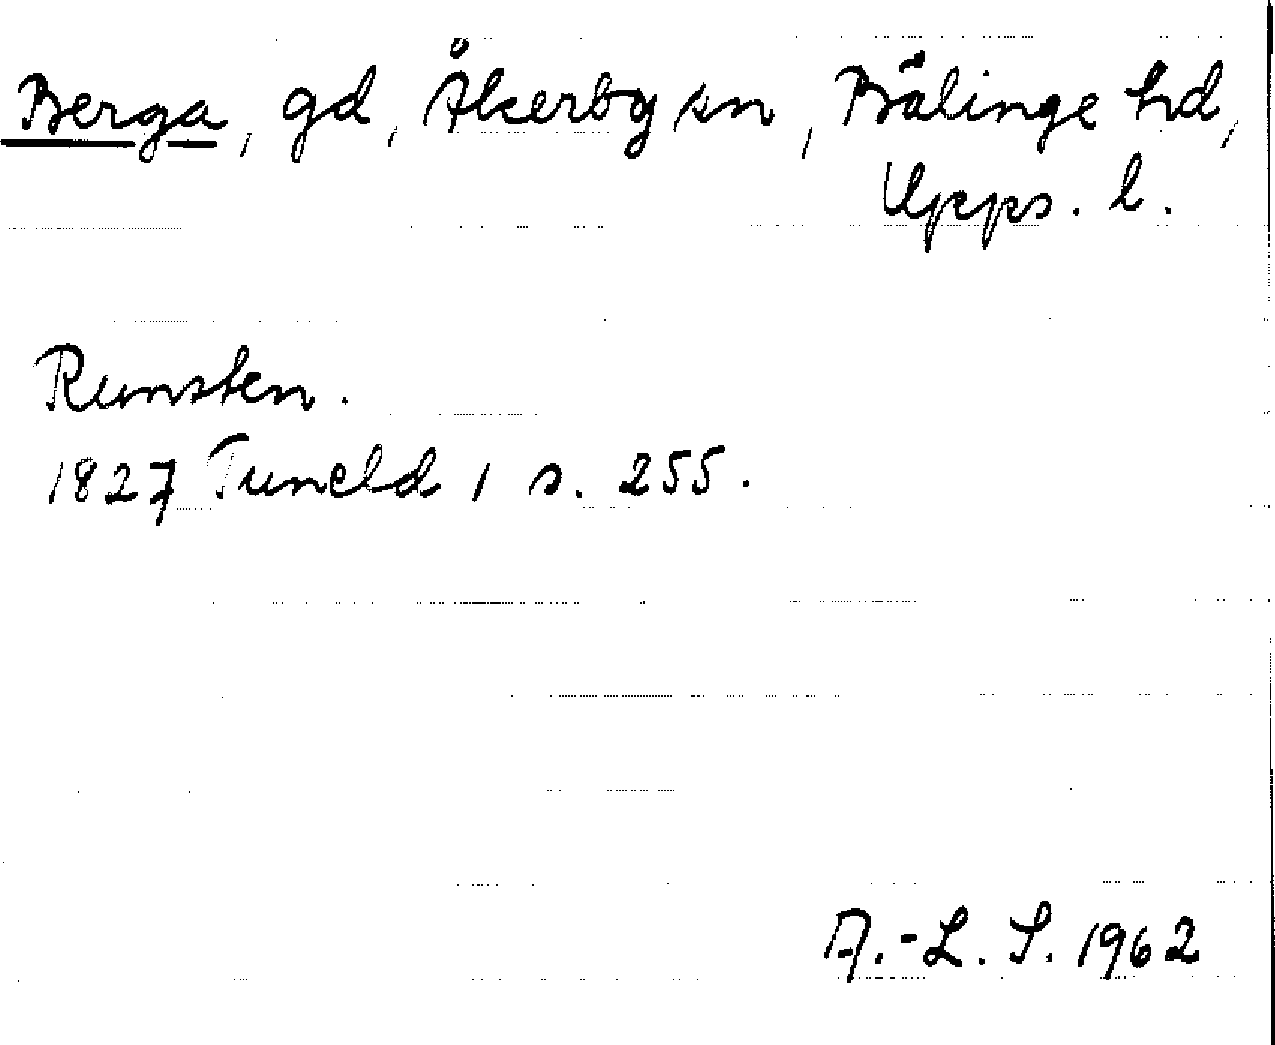 Berga, gd, Åkerby sn, Bälinge hd,
Upps. l.
Runsten.
1827 Tuneld 1 s. 255.
A.-L. S. 1962